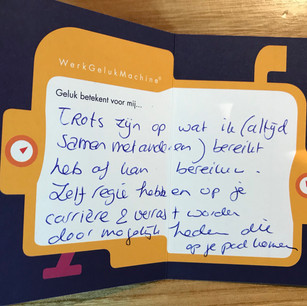 WerkGelukMachine®
Geluk betekent voor mij...
Trots zijn op wat ik (altijd
samen met anderen) bereikt
heb of kan bereiken.
Zelf regie hebben op je
carrière & verrast worden
door mogelijkheden die
op je pad komen